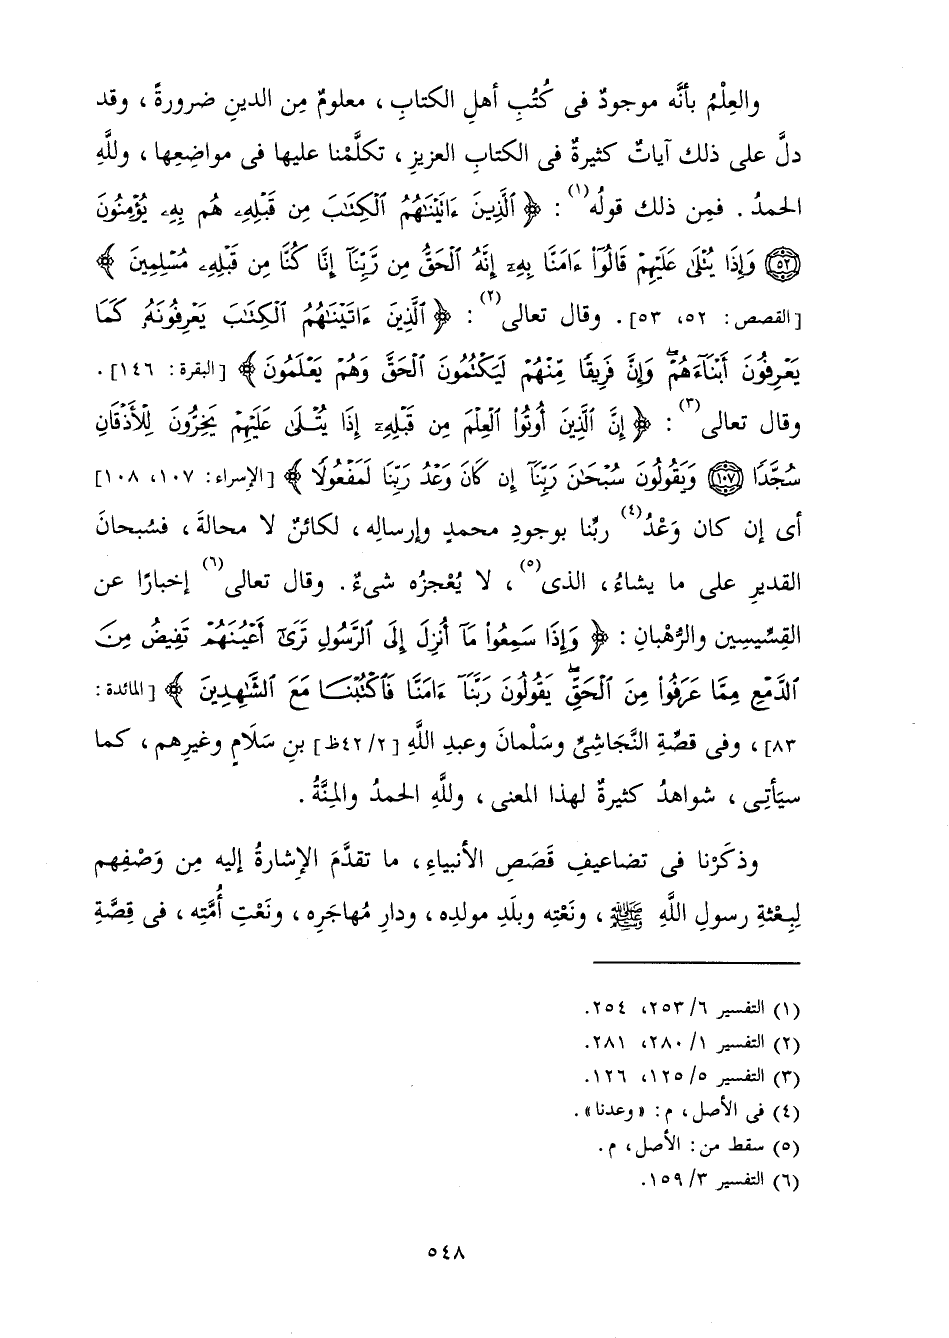 والعِلْمُ بأنَّه موجودٌ فى كُتُبِ أهلِ الكتابِ، معلومٌ مِن الدينِ ضرورةً، وقد
دلَّ على ذلك آياتٌ كثيرةٌ فى الكتابِ العزيزِ، تكلَّمْنا عليها فى مواضِعِها، وللَّهِ
الحمدُ. فمِن ذلك قولُه(١): ﴿ٱلَّذِينَ ءَاتَيْنَٰهُمُ ٱلْكِتَٰبَ مِن قَبْلِهِۦ هُم بِهِۦ يُؤْمِنُونَ
﴿٥٢﴾ وَإِذَا يُتْلَىٰ عَلَيْهِمْ قَالُوٓا۟ ءَامَنَّا بِهِۦٓ إِنَّهُ ٱلْحَقُّ مِن رَّبِّنَآ إِنَّا كُنَّا مِن قَبْلِهِۦ مُسْلِمِينَ﴾
[القصص: ٥٢، ٥٣]. وقال تعالى(٢): ﴿ٱلَّذِينَ ءَاتَيْنَٰهُمُ ٱلْكِتَٰبَ يَعْرِفُونَهُۥ كَمَا
يَعْرِفُونَ أَبْنَآءَهُمْ ۖ وَإِنَّ فَرِيقًا مِّنْهُمْ لَيَكْتُمُونَ ٱلْحَقَّ وَهُمْ يَعْلَمُونَ﴾ [البقرة: ١٤٦].
وقال تعالى(٣): ﴿إِنَّ ٱلَّذِينَ أُوتُوا۟ ٱلْعِلْمَ مِن قَبْلِهِۦٓ إِذَا يُتْلَىٰ عَلَيْهِمْ يَخِرُّونَ لِلْأَذْقَانِ
سُجَّدًا ﴿١٠٧﴾ وَيَقُولُونَ سُبْحَٰنَ رَبِّنَآ إِن كَانَ وَعْدُ رَبِّنَا لَمَفْعُولًا﴾ [الإسراء: ١٠٧، ١٠٨]
أى إن كان وَعْدُ(٤) ربِّنا بوجودِ محمدٍ وإرسالِه، لكائنٌ لا محالةَ، فسُبحانَ
القديرِ على ما يشاءُ، الذى(٥)، لا يُعْجزُه شىءٌ. وقال تعالى(٦) إخبارًا عن
القِسِّيسِين والرُّهبانِ: ﴿وَإِذَا سَمِعُوا۟ مَآ أُنزِلَ إِلَى ٱلرَّسُولِ تَرَىٰٓ أَعْيُنَهُمْ تَفِيضُ مِنَ
ٱلدَّمْعِ مِمَّا عَرَفُوا۟ مِنَ ٱلْحَقِّ ۖ يَقُولُونَ رَبَّنَآ ءَامَنَّا فَٱكْتُبْنَا مَعَ ٱلشَّٰهِدِينَ﴾ [المائدة:
٨٣]، وفى قصَّةِ النَّجَاشِىِّ وسَلْمانَ وعبدِ اللَّهِ [٤٢/٢ظ] بنِ سَلَامٍ وغيرِهم، كما
سيَأتِى، شواهدُ كثيرةٌ لهذا المعنى، وللَّهِ الحمدُ والمِنَّةُ.
وذكَرْنا فى تضاعيفِ قَصَصِ الأنبياءِ، ما تقدَّمَ الإشارةُ إليه مِن وَصْفِهم
لِبِعْثةِ رسولِ اللَّهِ ﷺ، ونَعْتِه وبلَدِ مولدِه، ودارِ مُهاجَرِه، ونَعْتِ أُمَّتِه، فى قِصَّةِ
(١) التفسير ٦/ ٢٥٣، ٢٥٤.
(٢) التفسير ١/ ٢٨٠، ٢٨١.
(٣) التفسير ٥/ ١٢٥، ١٢٦.
(٤) فى الأصل، م: «وعدنا».
(٥) سقط من: الأصل، م.
(٦) التفسير ٣/ ١٥٩.
٥٤٨